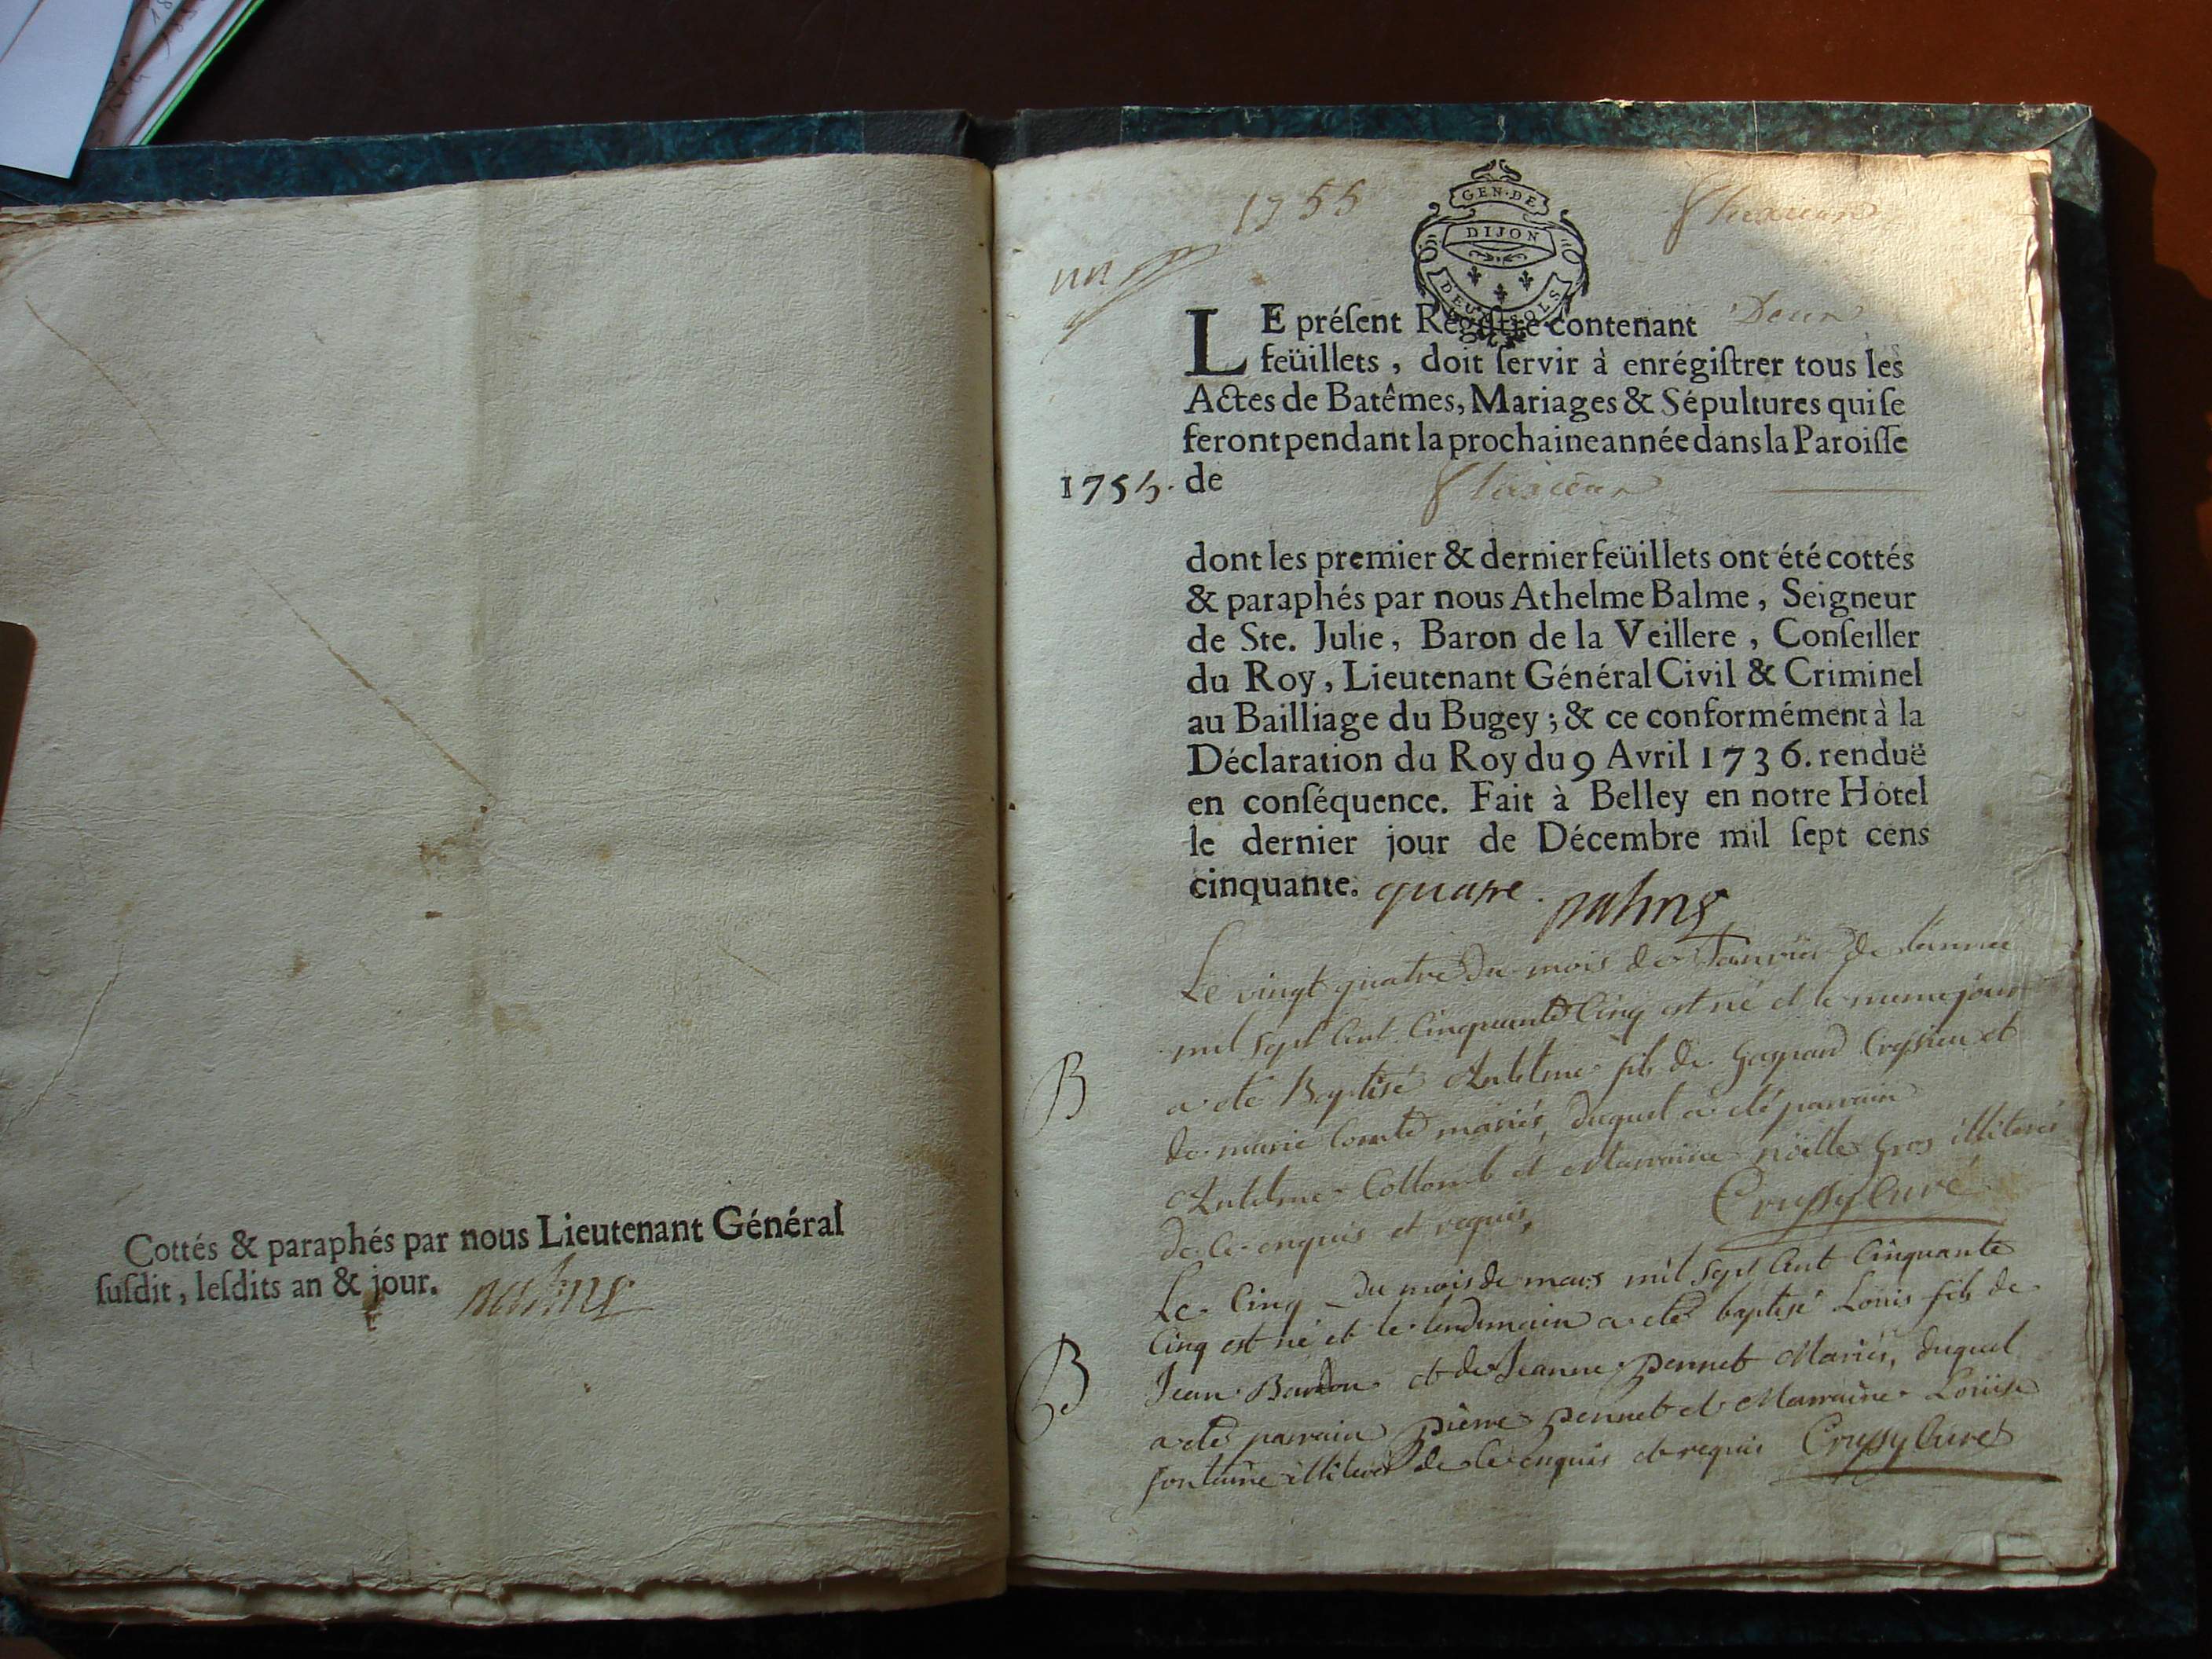 Cottés & paraphés par nous Lieutenant Général
ſuſdit, leſdits an & jour.
1755
GEN·DE
DIJON
DEUX SOLS
un
LE préſent Regiſtre contenant Deux
feüillets, doit ſervir à enrégiſtrer tous les
Actes de Batêmes, Mariages & Sépultures qui ſe
feront pendant la prochaine année dans la Paroiſſe
1755. de
dont les premier & dernier feüillets ont été cottés
& paraphés par nous Athelme Balme, Seigneur
de Ste. Julie, Baron de la Veillere, Conſeiller
du Roy, Lieutenant Général Civil & Criminel
au Bailliage du Bugey; & ce conformément à la
Déclaration du Roy du 9 Avril 1736. renduë
en conſéquence. Fait à Belley en notre Hôtel
le dernier jour de Décembre mil ſept cens
cinquante. quatre.
Le vingt quatre du mois de Janvier de l'année
mil sept cent Cinquante Cinq est né et le meme jour
B
a été Baptisé Antelme fils de Gaspard Cressieu et
de marie Comte mariés, duquel a été parrain
Antelme Collomb et Marraine noëlle Gros illiterés
de ce enquis et requis, Crussy Curé
Le Cinq du mois de mars mil sept Cent Cinquante
Cinq est né et le lendemain a été baptisé Louis fils de
B
Jean et de Jeanne pennet Mariés, duquel
a été parrain pierre pennet et Marraine Louise
fontaine illiterés de ce enquis et requis Crussy Curé